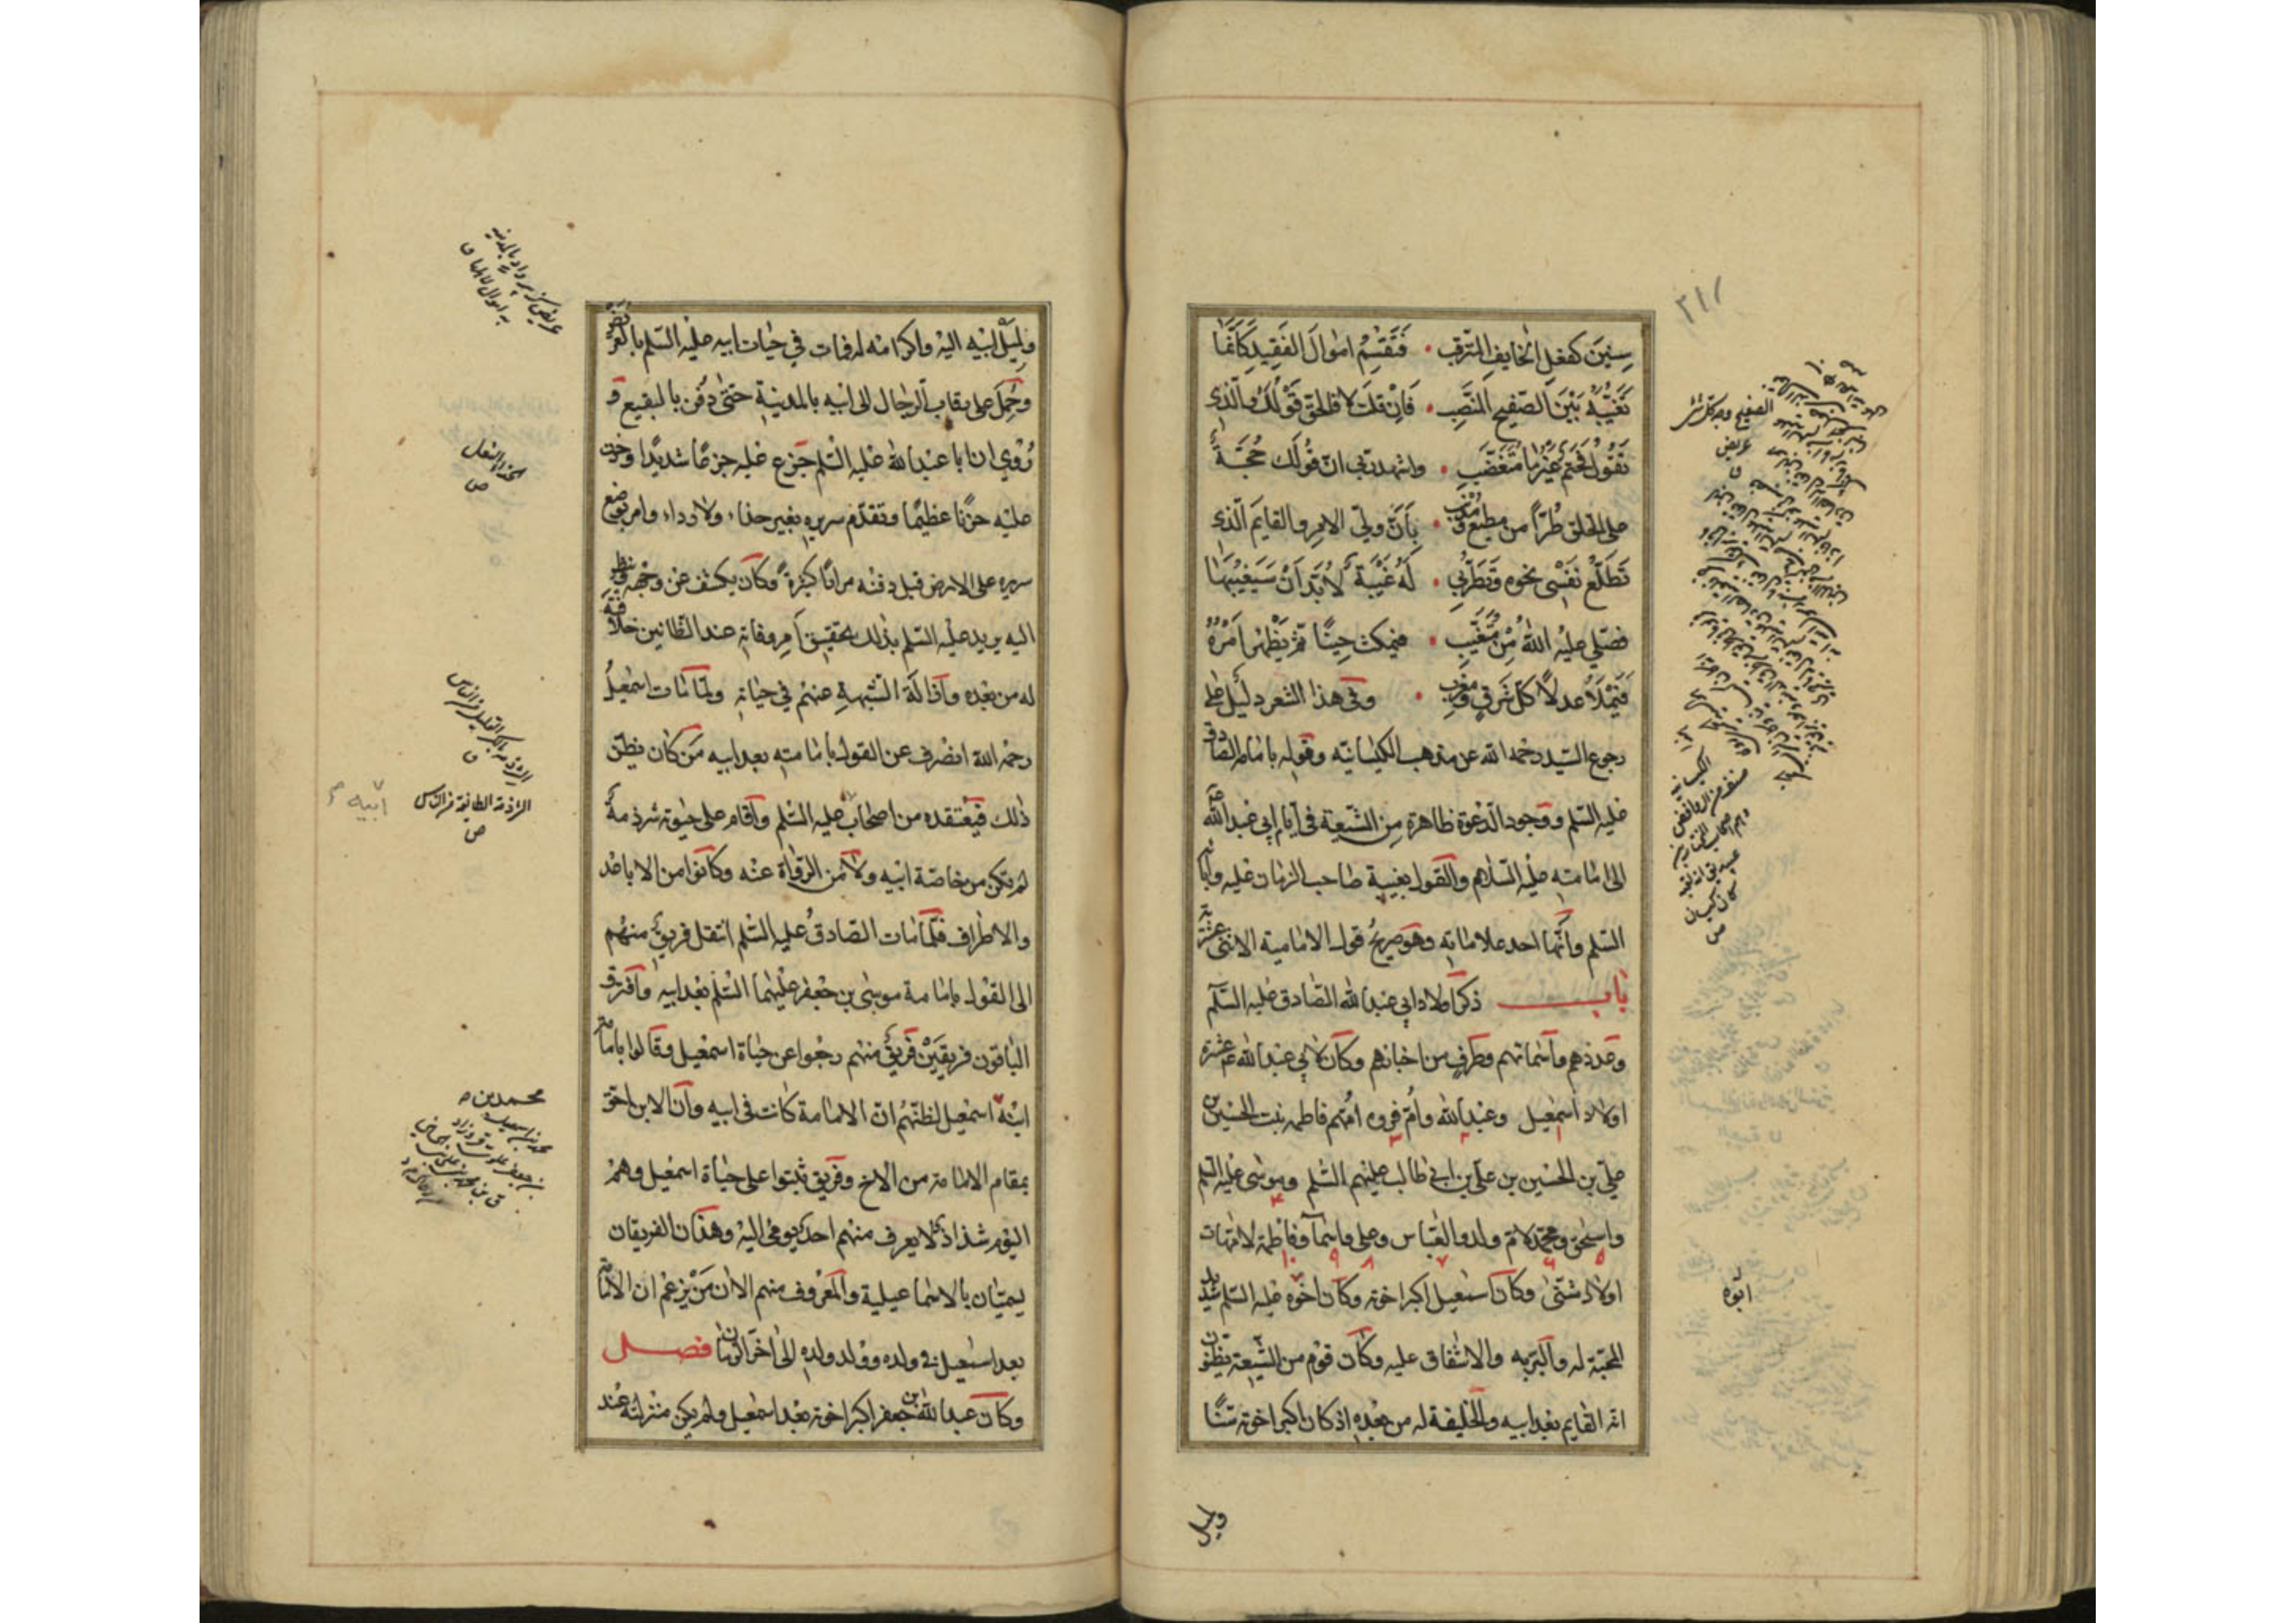 ٢١١
سِنِينَ كفعل الخايفِ المترقب • فَتَقسِمُ اموالَ الفَقيدِ كَانَّمَا
تَغَيُّبُهُ بَيْنَ الصَفيحِ المُنَصَّبِ • فَاِنْ قلتَ لا فالحق قولكَ والّذى
تقُولُ فحَتمٌ غَيْرَ مَا مُتَغَضِّبِ • واشهد ربى انّ قولَك حُجّةٌ
على الخلق طُرًّا من مطيع ومُذْنِبِ • بأنّ ولىّ الامرِ والقايمَ الّذى
تَطَلَّعُ نَفْسى نحوه وَتَطَرُّبى • لَهُ غَيْبَةٌ لابُدَّ اَنْ سَيَغيبُهَا
فصلّى عليهِ اللهُ مِنْ مُتَغَيّبِ • فيمكث حِينًا ثم يَظْهَرُ اَمْرُهُ
فَيَمْلَأُ عدلًا كلّ شَرقٍ ومَغْرِبِ • وفى هذا الشعر دليلٌ على
رجوع السّيد رحمه الله عن مذهب الكيسانيّه وقوله بامامه الصّادق
عليه السّلم ووجود الدّعوة ظاهرة مِن الشّيعة فى ايّام ابى عبد الله عم
الى امامته عليه السّلام والقول بغيبة صاحب الزمان عليه وآبائه
السّلم وانّها احد علاماته وهو صريحُ قول الامامية الاثنى عشريّة
باب ذكر اولاد ابى عبد الله الصّادق عليه السّلم
وعددهم واسمائهم وطرفٍ من اخبارهم وكان لابى عبد الله عم عشرة
اولاد اسمعيل وعبد الله وامّ فروه امّهم فاطمه بنت الحسين بن
علىّ بن الحسين بن علىّ بن ابى طالب عليهم السّلم وموسى عليه السّلم
واسحٰق ومحمّد لامّ ولد والعبّاس وعلى واسمآ وفاطمة لامّهات
اولاد شتّى وكان اسمعيل اكبر اخوته وكان اخوه عليه السّلم شديد
ابوه
المحبّة له والبرّ به والاشفاق عليه وكان قوم من الشّيعة يظنّون
انّه القايم بعد ابيه والخليفة له من بعده اذ كان اكبر اخوته سنًّا
وليل
وليل ابيه اليه واكرامه له فمات فى حيات ابيه عليه السّلم بالعريض
وحُمِلَ على رقاب الرّجال الى ابيه بالمدينة حتّى دُفن بالبقيع و
رُوى ان ابا عبد الله عليه السّلم جزع عليه جزعًا شديدًا وحزن
عليه حزنًا عظيمًا وتقدّم سريره بغير حذاء ولا رداء وامر بوضع
سريره على الارض قبل دفنه مرارًا كثيرةً وكان يكشف عن وجهه وينظر
اليه يريد عليه السّلم بذلك تحقيق امر وفاته عند الظانين خلافَته
له من بعده وازالَة الشّبهةِ عنهم فى حياته ولمّا مات اسمعيلُ
رحمه الله انصرف عن القول بامامته بعد ابيه مَن كان يظنّ
ذلك فيعتقده من اصحاب عليه السّلم واقام على حيوته شرذمةٌ
لم تكن من خاصّة ابيه ولا من الرّواة عنه وكانوا من الاباعد
والاطراف فلمّا مات الصّادقُ عليه السّلم انتقل فريقٌ منهم
الى القول بامامة موسى بن جعفر عليهما السّلم بعد ابيه وافترق
الباقون فريقَيْن فريقٌ منهم رجعوا عن حياة اسمعيل وقالوا بامامة
ابنه اسمعيل لظنّهم انّ الامامة كانت فى ابيه وانّ الابن احقّ
بمقام الامامة من الاخ وفريق ثبتوا على حياة اسمعيل وهُم
اليوم شذاذ لا يعرف منهم احد يُومى اليه وهذان الفريقان
يسمّيان بالاسماعيلية والمعروف منهم الان مَنْ يزعم ان الامامة
بعد اسمعيل فى ولده وولد ولده الى آخر الزّمان فصل
وكان عبد الله بن جعفر اكبر اخوته بعد اسمعيل ولم يكن منزلته عند
الشرذمة الطائفة من الناس
ص
ابيه
محمد بن